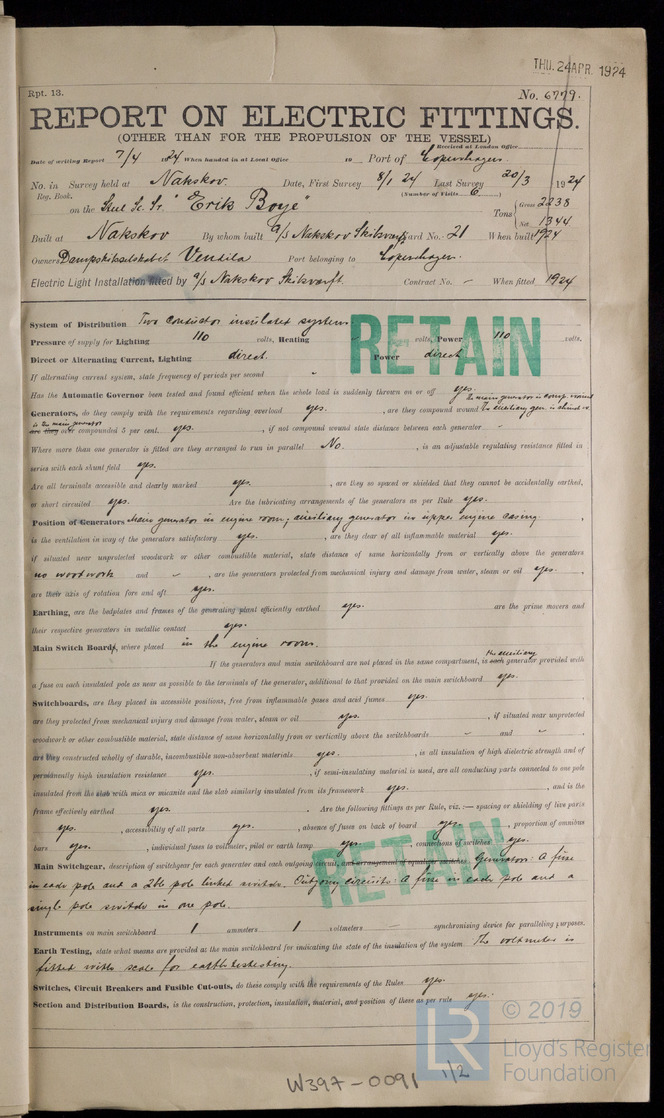 THU. 24 APR. 1924
Rpt. 13.
No. 6779.
REPORT ON ELECTRIC FITTINGS.
(OTHER THAN FOR THE PROPULSION OF THE VESSEL)
Received at London Office
Date of writing Report 7/4 1924 When handed in at Local Office 19 Port of Copenhagen.
No. in Survey held at Nakskov. Date, First Survey 8/1 24 Last Survey 20/3 1924
Reg. Book. (Number of Visits 6)
on the Steel Sc. Sr. "Erik Boye" Tons { Gross 2238
Net 1344
Built at Nakskov By whom built A/S Nakskov Skibsværft Yard No. 21 When built 1924
Owners Dampskibsselskabet Vendila Port belonging to Copenhagen.
Electric Light Installation fitted by A/S Nakskov Skibsværft. Contract No. - When fitted 1924
RETAIN
System of Distribution Two conductor insulated system
Pressure of supply for Lighting 110 volts, Heating - volts, Power 110 volts.
Direct or Alternating Current, Lighting direct. Power direct
If alternating current system, state frequency of periods per second -
Has the Automatic Governor been tested and found efficient when the whole load is suddenly thrown on or off yes.
The main generator is comp. wound
Generators, do they comply with the requirements regarding overload yes. , are they compound wound The auxiliary gen. is shunt w.
is the main generator
are they over compounded 5 per cent. yes. , if not compound wound state distance between each generator -
Where more than one generator is fitted are they arranged to run in parallel No. , is an adjustable regulating resistance fitted in
series with each shunt field yes.
Are all terminals accessible and clearly marked yes. , are they so spaced or shielded that they cannot be accidentally earthed,
or short circuited yes. Are the lubricating arrangements of the generators as per Rule yes.
Position of Generators Main generator in engine room; auxiliary generator in upper engine casing.
is the ventilation in way of the generators satisfactory yes. , are they clear of all inflammable material yes.
if situated near unprotected woodwork or other combustible material, state distance of same horizontally from or vertically above the generators
no woodwork and - , are the generators protected from mechanical injury and damage from water, steam or oil yes.
are their axis of rotation fore and aft yes.
Earthing, are the bedplates and frames of the generating plant efficiently earthed yes. are the prime movers and
their respective generators in metallic contact yes.
Main Switch Boards, where placed in the engine room.
the auxiliary
If the generators and main switchboard are not placed in the same compartment, is each generator provided with
a fuse on each insulated pole as near as possible to the terminals of the generator, additional to that provided on the main switchboard yes.
Switchboards, are they placed in accessible positions, free from inflammable gases and acid fumes yes.
are they protected from mechanical injury and damage from water, steam or oil yes. , if situated near unprotected
woodwork or other combustible material, state distance of same horizontally from or vertically above the switchboards - and -
are they constructed wholly of durable, incombustible non-absorbent materials yes. , is all insulation of high dielectric strength and of
permanently high insulation resistance yes. , if semi-insulating material is used, are all conducting parts connected to one pole
insulated from the slab with mica or micanite and the slab similarly insulated from its framework yes. , and is the
frame effectively earthed yes. Are the following fittings as per Rule, viz.:— spacing or shielding of live parts
yes. , accessibility of all parts yes. , absence of fuses on back of board yes. , proportion of omnibus
bars yes. , individual fuses to voltmeter, pilot or earth lamp yes. , connections of switches yes.
RETAIN
Main Switchgear, description of switchgear for each generator and each outgoing circuit, and arrangement of equaliser switches Generators: A fuse
in each pole and a dble pole linked switch. Outgoing circuits: A fuse in each pole and a
single pole switch in one pole.
Instruments on main switchboard 1 ammeters 1 voltmeters - synchronising device for paralleling purposes.
Earth Testing, state what means are provided at the main switchboard for indicating the state of the insulation of the system. The voltmeter is
fitted with scale for earth testing.
Switches, Circuit Breakers and Fusible Cut-outs, do these comply with the requirements of the Rules yes.
Section and Distribution Boards, is the construction, protection, insulation, material, and position of these as per rule yes.
LR
© 2019
Lloyd's Register
Foundation
W397-0091 1/2